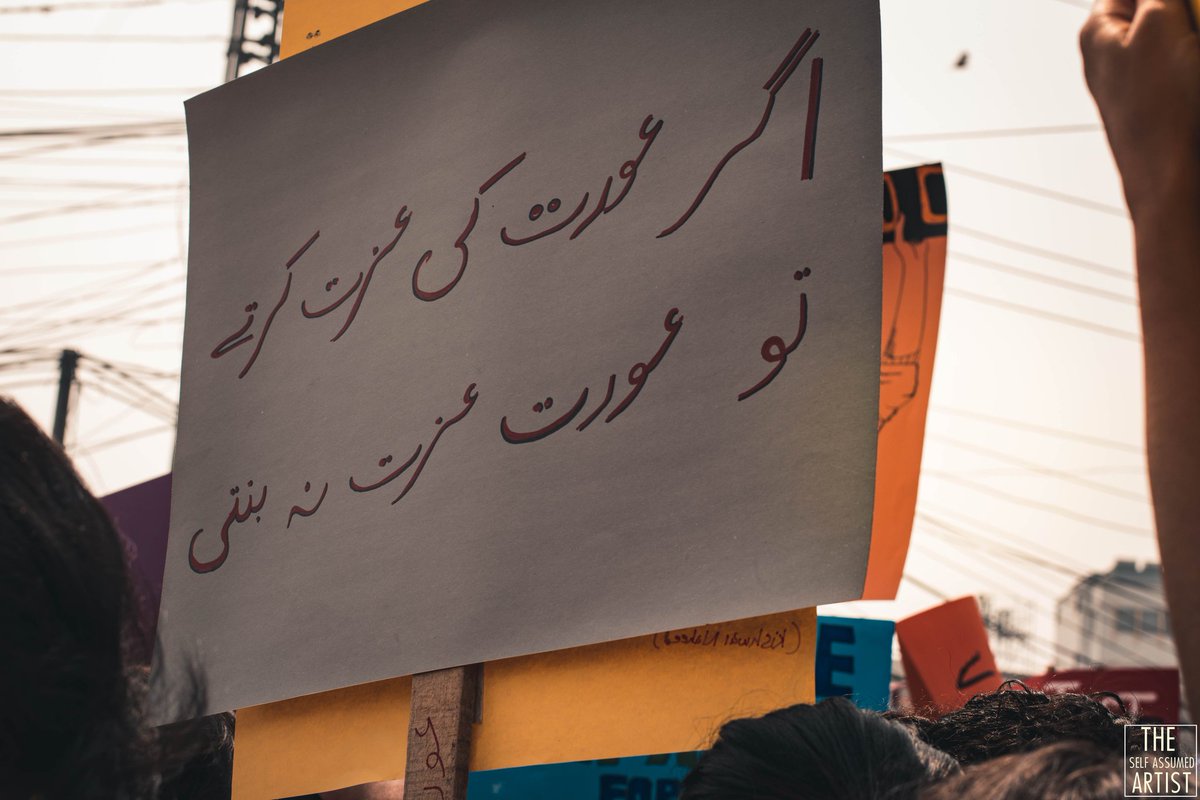 اگر عورت کی عزت کرتے
تو عورت عزت نہ بنتی
(Kishwar Naheed)
E
FOR
THE
SELF ASSUMED
ARTIST